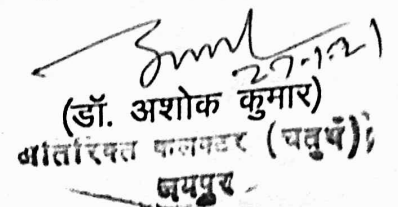 27.1.21
(डॉ. अशोक कुमार)
अतिरिक्त कलक्टर (चतुर्थ)
जयपुर